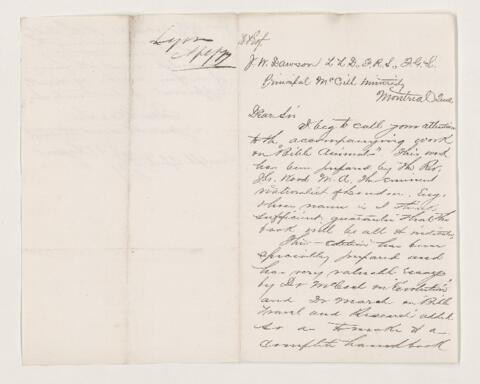 To Prof.
J. W. Dawson L L D, F. R. S., F. G. S.
Principal McGill University
Montreal Que
Dear Sir
I beg to call your attention
to the accompanying work
on "Bible Animals" This work
has been prepared by the Rev.
J. G. Wood M. A. the eminent
naturalist of London. Eng.
whose name is I think
sufficient guarantee that the
book will be all it
This edition has been
specially prepared and
has very valuable Essays
by Dr McCosh on "Evolution"
and Dr March on Bible
Travel and Research added
so as to make it a
complete handbook